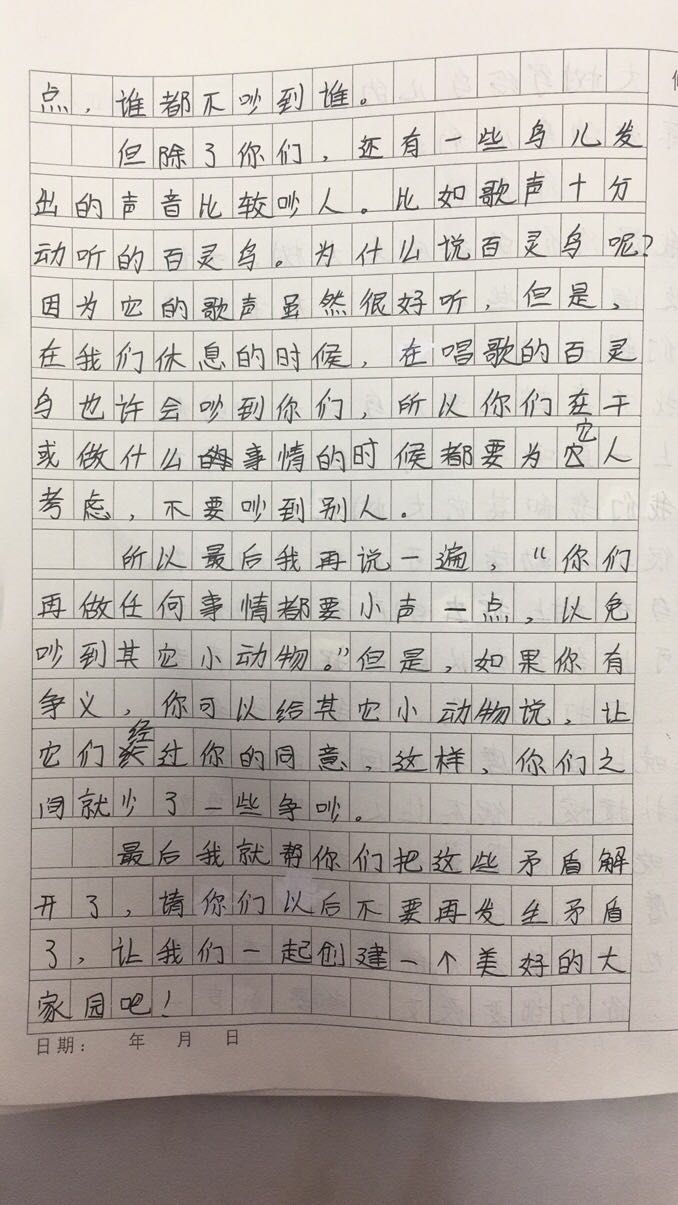 点，谁都不吵到谁。
但除了你们，还有一些鸟儿发
出的声音比较吵人。比如歌声十分
动听的百灵鸟。为什么说百灵鸟呢？
因为它的歌声虽然很好听，但是，
在我们休息的时候，在唱歌的百灵
鸟也许会吵到你们，所以你们在干
或做什么事情的时候都要为它人
考虑，不要吵到别人。
所以最后我再说一遍，“你们
再做任何事情都要小声一点，以免
吵到其它小动物。”但是，如果你有
争义，你可以给其它小动物说，让
它们经过你的同意，这样，你们之
间就少了一些争吵。
最后我就帮你们把这些矛盾解
开了，请你们以后不要再发生矛盾
了，让我们一起创建一个美好的大
家园吧！
日期： 年 月 日